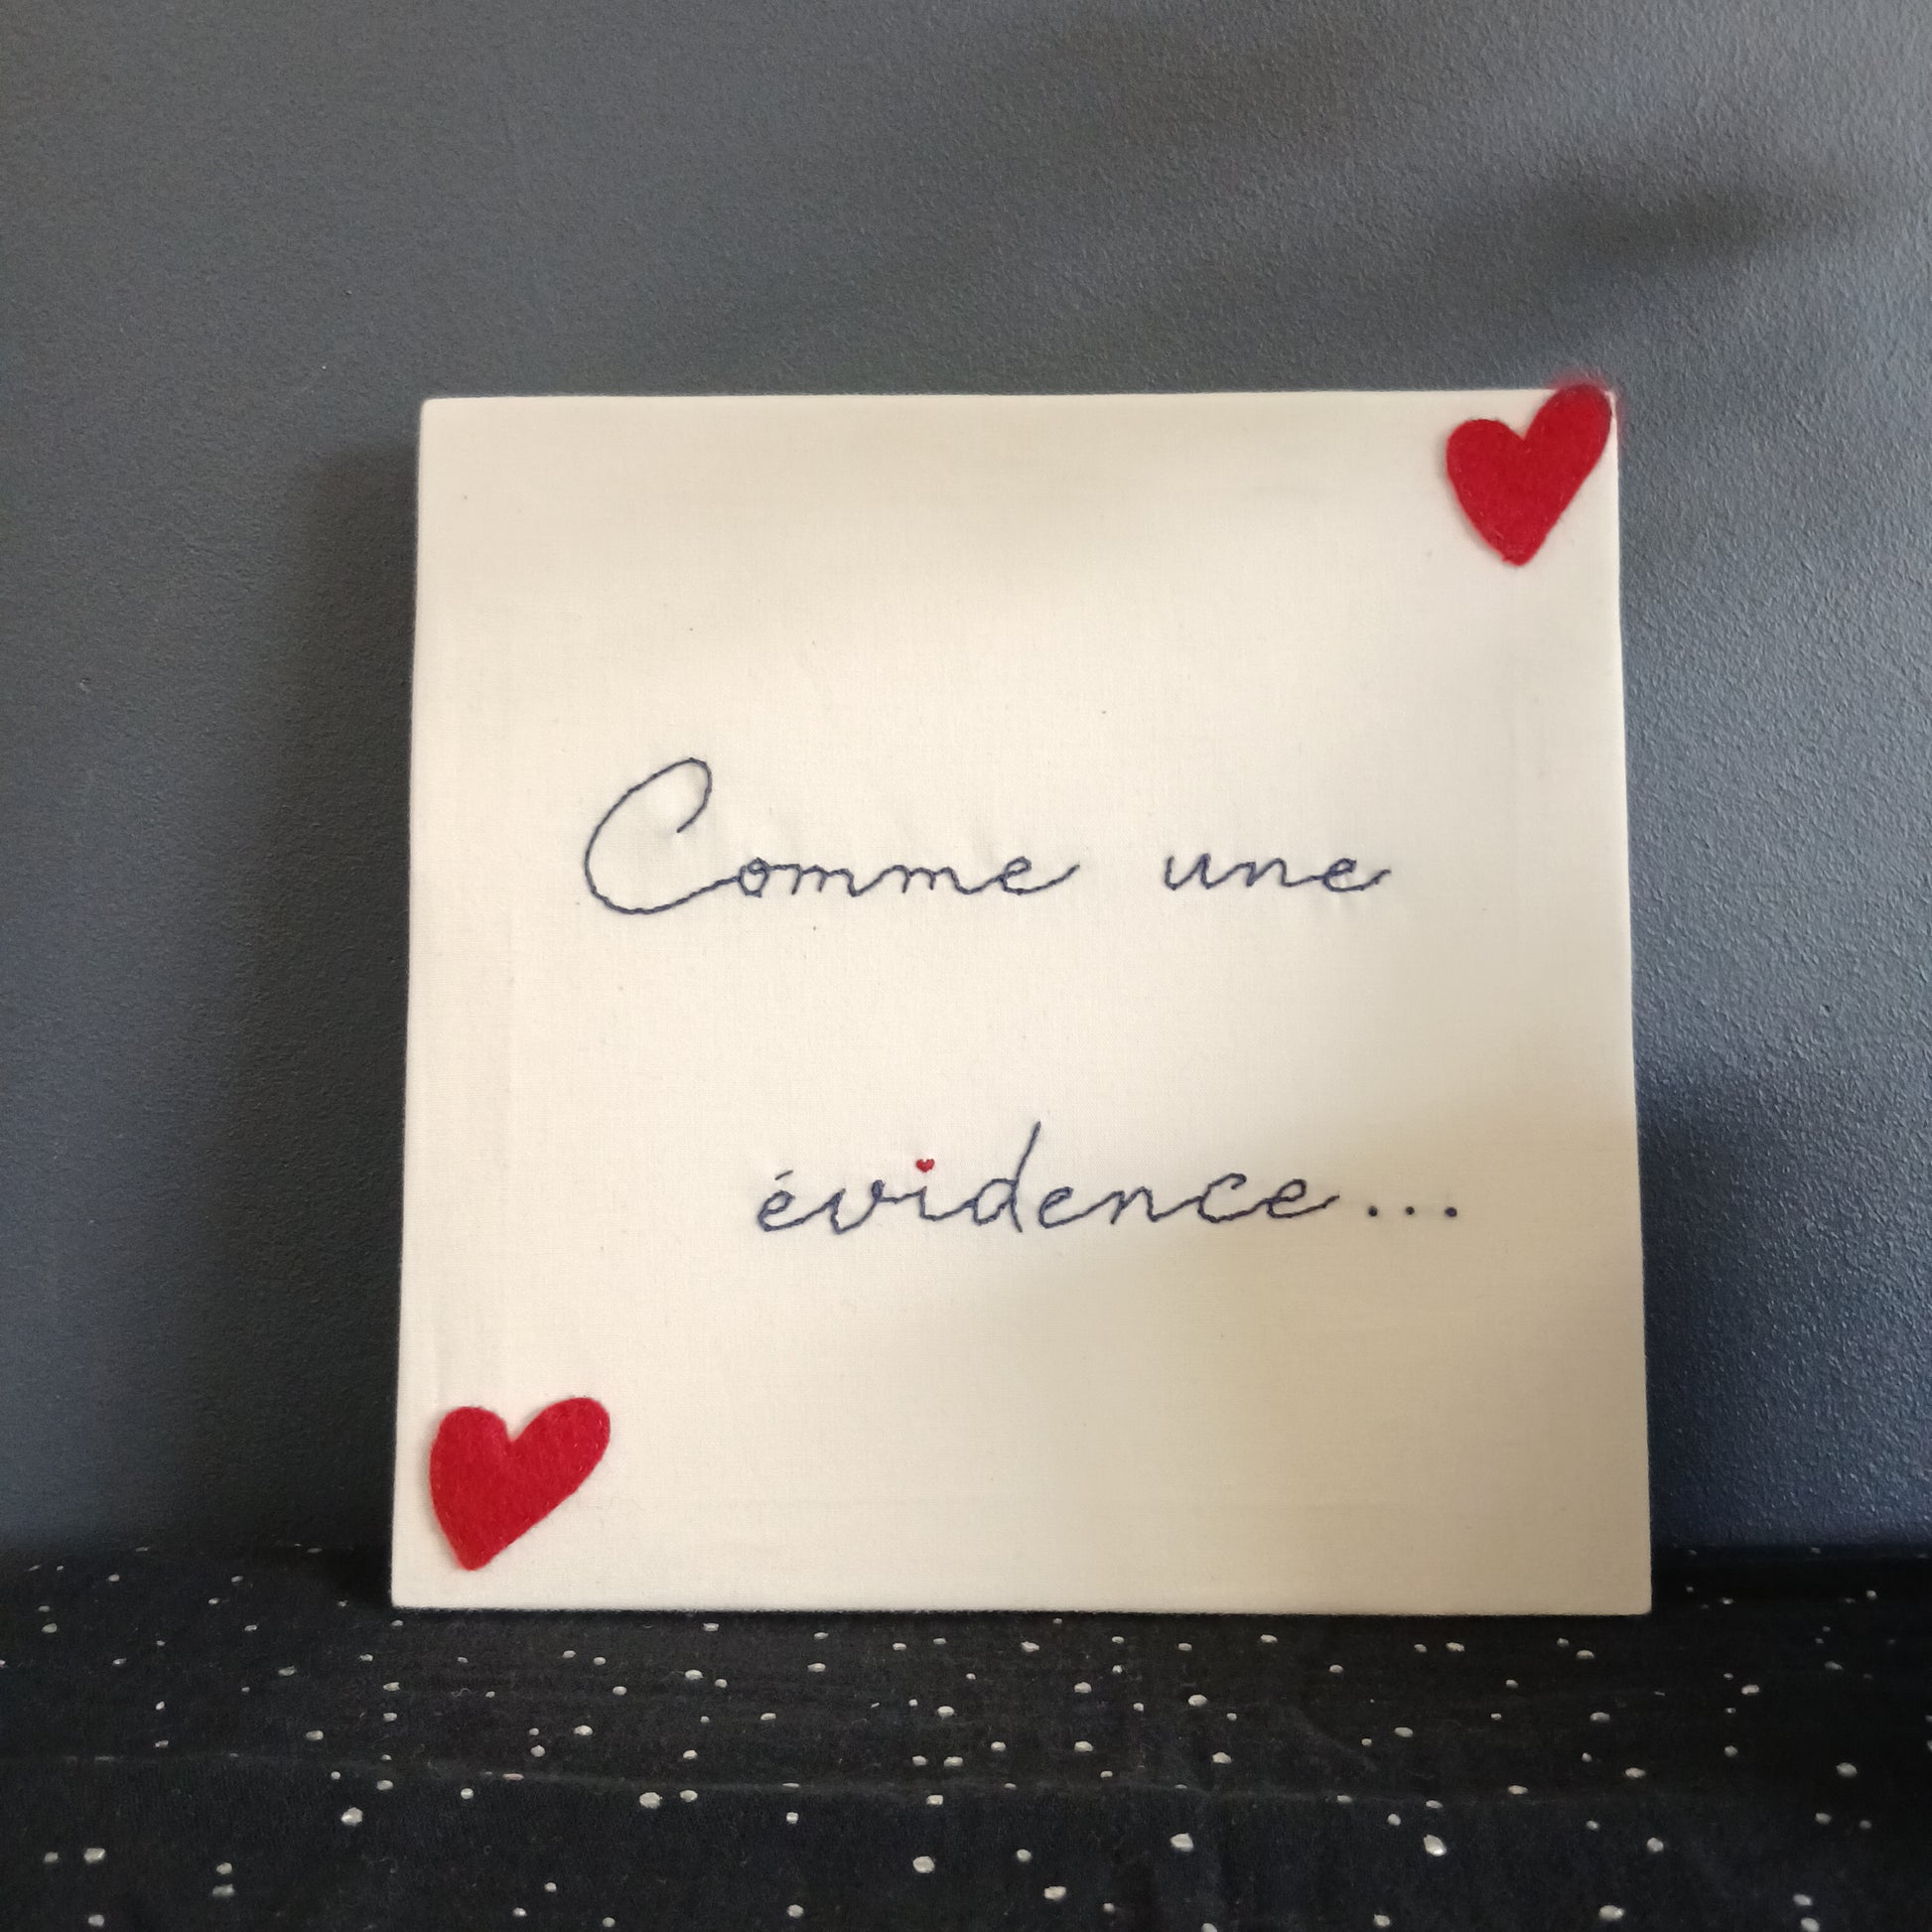 Comme une
évidence...